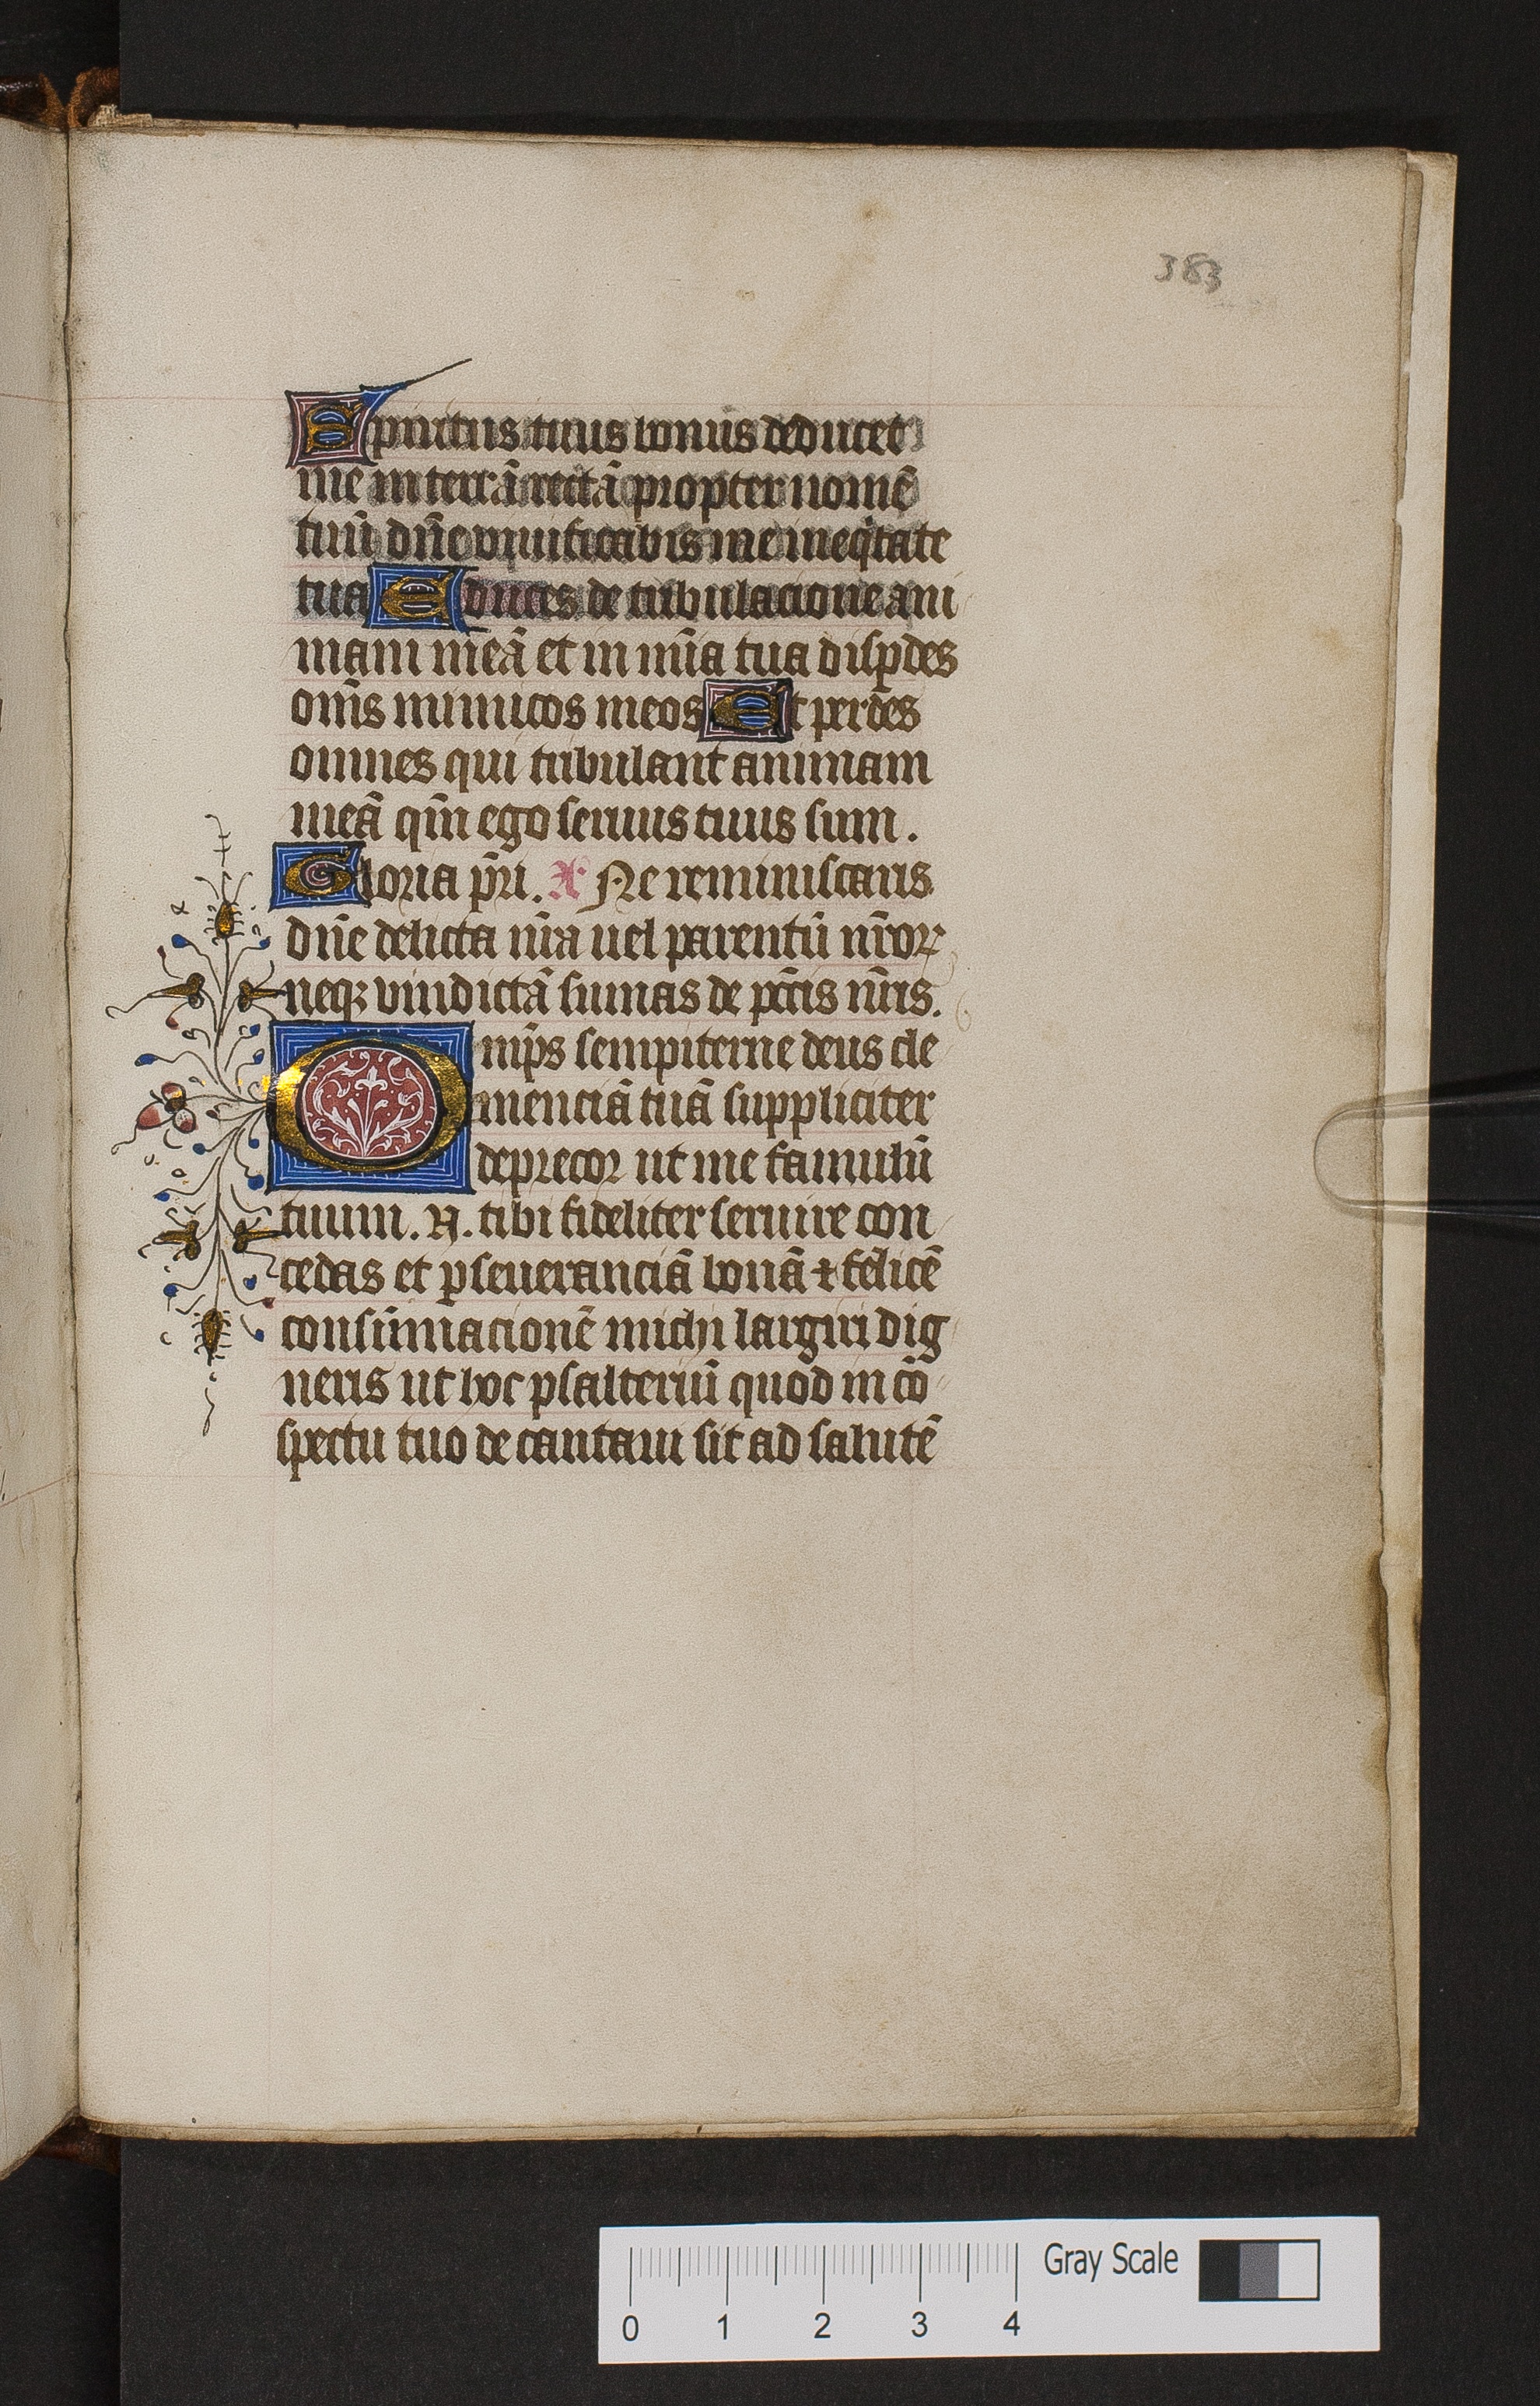 383
Spiritus tuus bonus deducet
me in terrā rectā propter nomē
tuū dn̄e viuificabis me in eqͥtate
tua Educes de tribulacione ani
mam meā et in mīa tua disꝑdes
om̄s inimicos meos Et perdes
omnes qui tribulant animam
meā qm̄ ego seruus tuus sum.
Gloria pr̄i. A' Ne reminiscaris
dn̄e delicta nr̄a uel parentū nr̄oꝝ
neqꝫ vindictā sumas de pctīs nr̄is.
Omp̄s sempiterne deus cle
menciā tuā suppliciter
deprecor ut me famulū
tuum. N. tibi fideliter seruire con
cedas et ꝑseueranciā bonā ⁊ felicē
consūmacionē michi largiri dig
neris ut hoc psalteriū quod in cō
spectu tuo decantaui sit ad salutē
0 1 2 3 4
Gray Scale